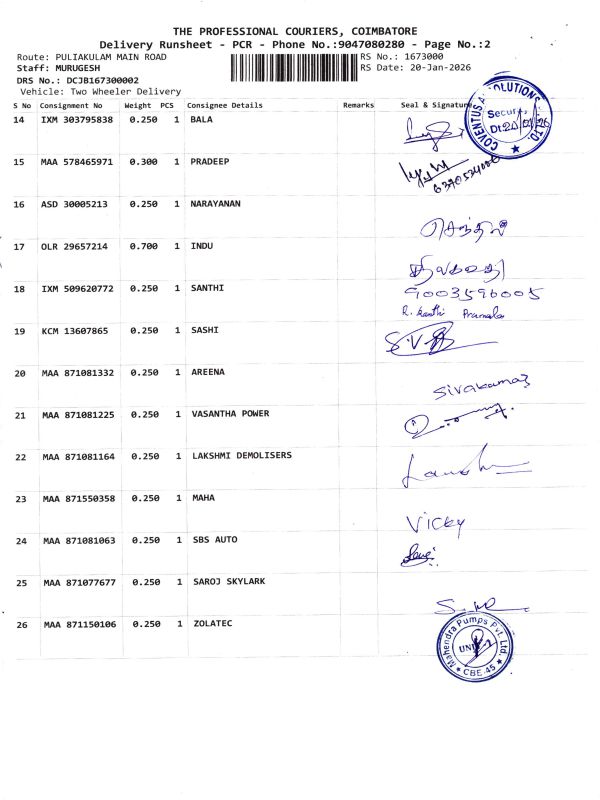 THE PROFESSIONAL COURIERS, COIMBATORE
Delivery Runsheet - PCR - Phone No.:9047080280 - Page No.:2
Route: PULIAKULAM MAIN ROAD
RS No.: 1673000
Staff: MURUGESH
RS Date: 20-Jan-2026
DRS No.: DCJB167300002
Vehicle: Two Wheeler Delivery
S No Consignment No Weight PCS Consignee Details Remarks Seal & Signature
14 IXM 303795838 0.250 1 BALA
15 MAA 578465971 0.300 1 PRADEEP
16 ASD 30005213 0.250 1 NARAYANAN
செந்தில்
17 OLR 29657214 0.700 1 INDU
18 IXM 509620772 0.250 1 SANTHI
9003596005
19 KCM 13607865 0.250 1 SASHI
20 MAA 871081332 0.250 1 AREENA
21 MAA 871081225 0.250 1 VASANTHA POWER
22 MAA 871081164 0.250 1 LAKSHMI DEMOLISERS
23 MAA 871550358 0.250 1 MAHA
Vicky
24 MAA 871081063 0.250 1 SBS AUTO
25 MAA 871077677 0.250 1 SAROJ SKYLARK
26 MAA 871150106 0.250 1 ZOLATEC
Mahendra Pumps Pvt. Ltd.
CBE-45